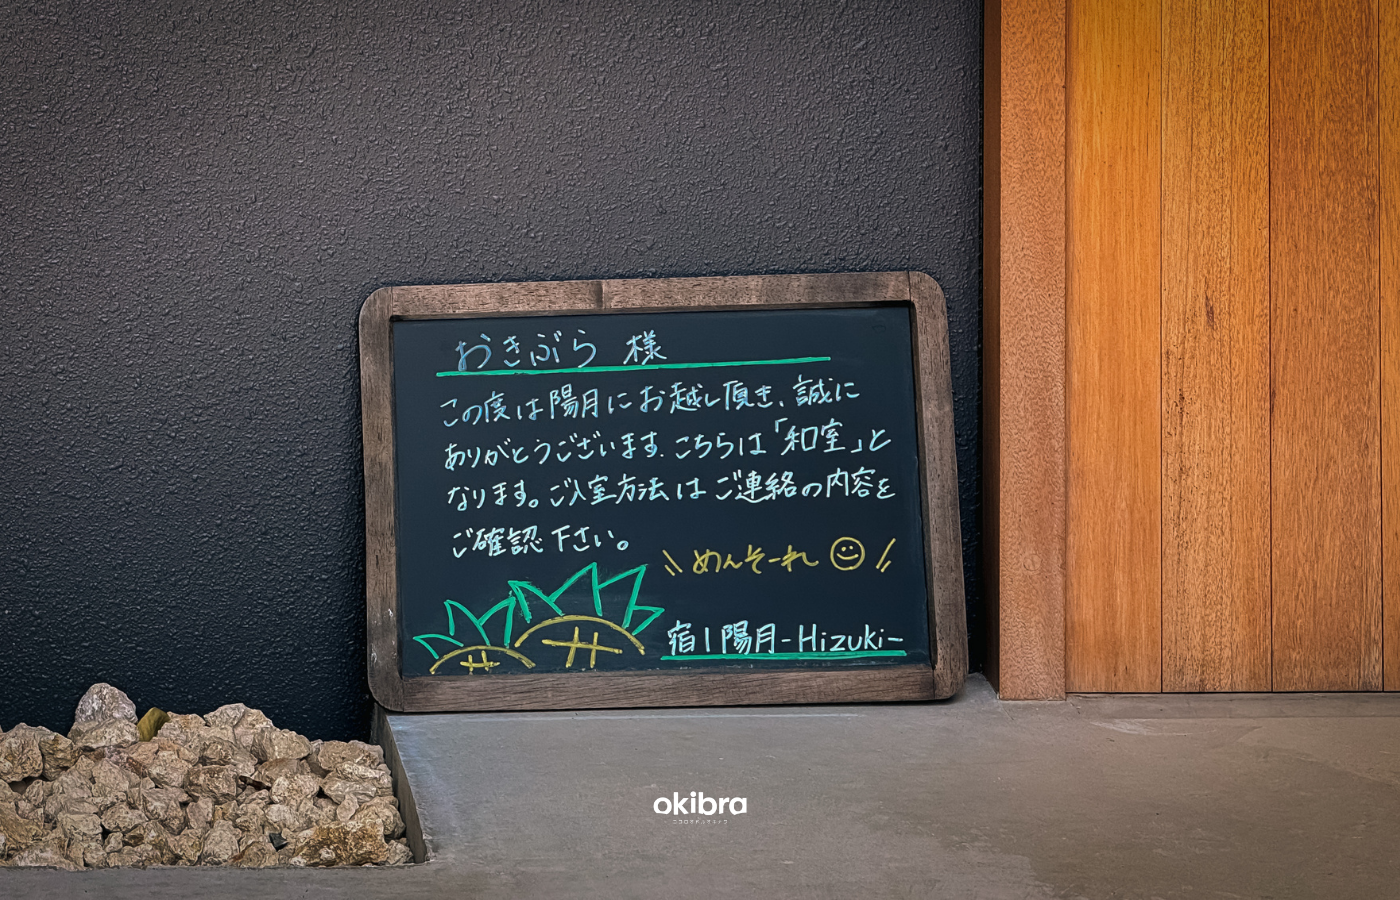 おきぶら 様
この度は陽月にお越し頂き、誠に
ありがとうございます。こちらは「和室」と
なります。ご入室方法はご連絡の内容を
ご確認下さい。
\\ めんそーれ //
宿|陽月-Hizuki-
okibra